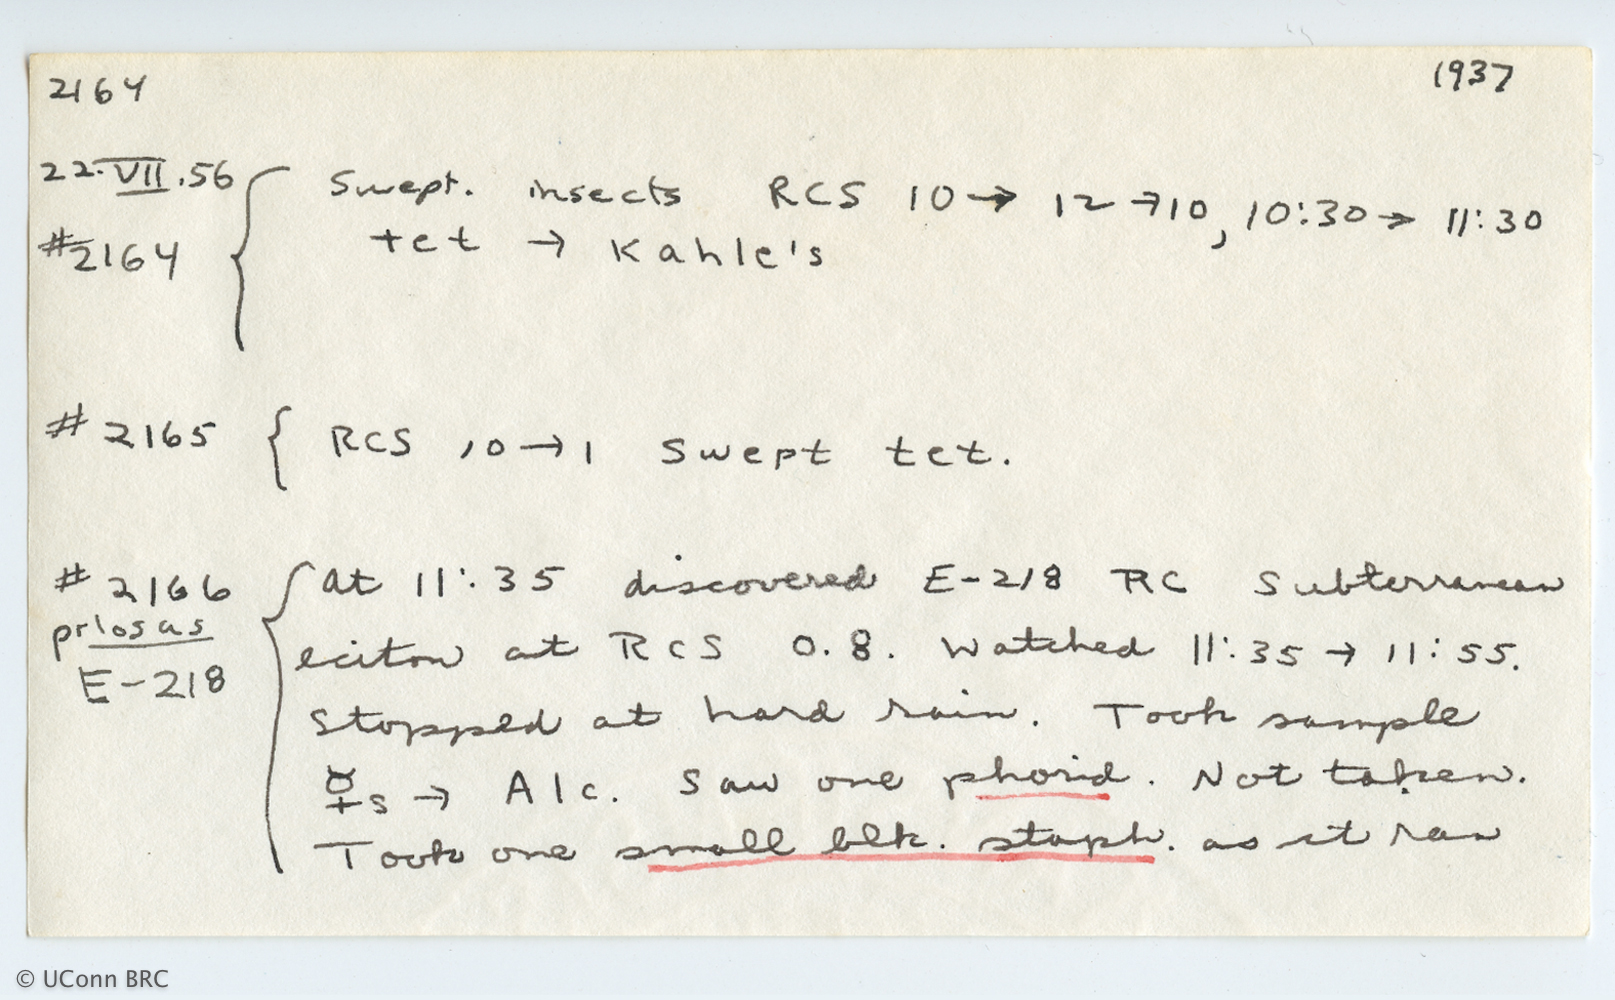 2164 1937
22.VII.56 Swept. insects RCS 10 → 12 → 10, 10:30 → 11:30
#2164 tet → Kahle's
# 2165 { RCS 10 → 1 Swept tet.
# 2166 At 11:35 discovered E-218 RC Subterranean
eciton at RCS 0.8. Watched 11:35 → 11:55.
E-218
Stopped at hard rain. Took sample
☿s → Alc. Saw one phorid. Not taken.
Took one small blk. staph. as it ran
© UConn BRC